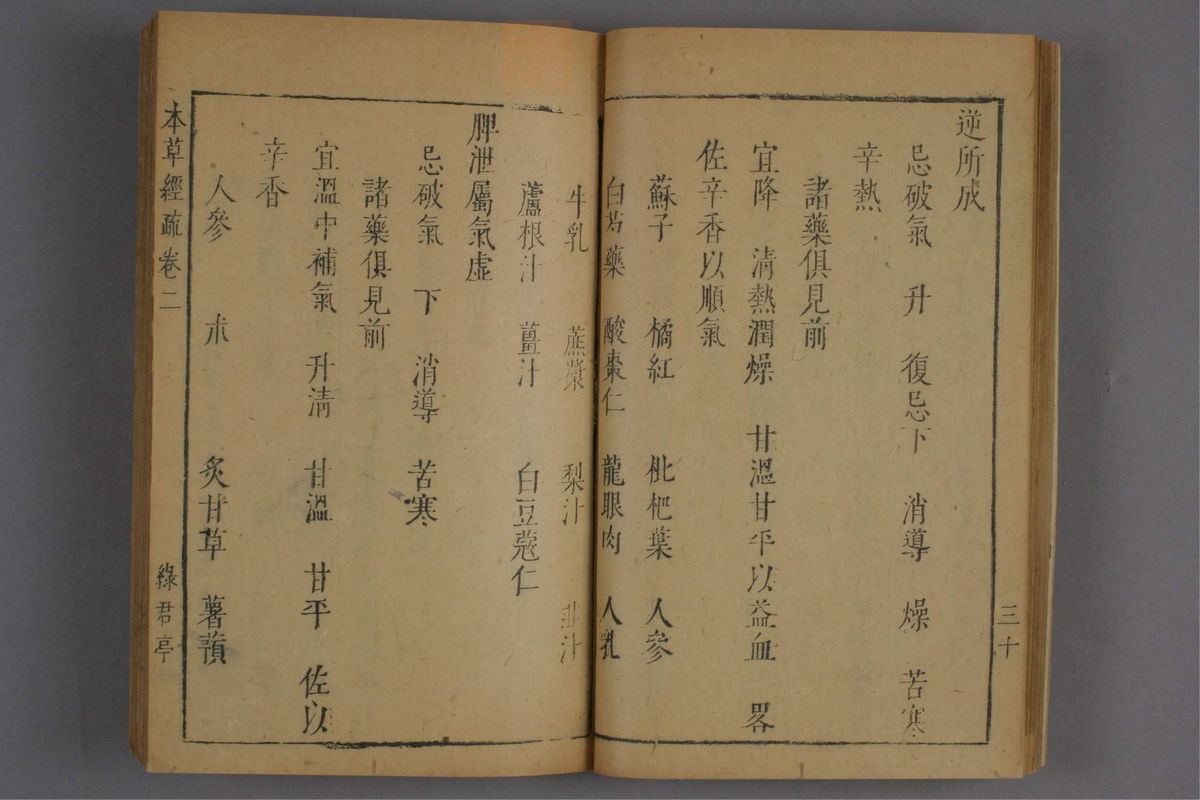 逆所成
忌破氣 升 復忌下 消導 燥 苦寒
辛熱
諸藥俱見前
宜降 清熱潤燥 甘溫甘平以益血 畧
佐辛香以順氣
蘇子 橘紅 枇杷葉 人參
白芍藥 酸棗仁 龍眼肉 人乳
牛乳 蔗漿 梨汁 韭汁
蘆根汁 薑汁 白豆蔻仁
脾泄屬氣虛
忌破氣 下 消導 苦寒
諸藥俱見前
宜溫中補氣 升清 甘溫 甘平 佐以
辛香
人參 朮 炙甘草 薯蕷
本草經疏卷二
綠君亭
三十